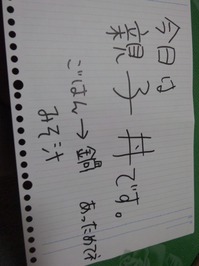 今日は
親子丼です。
ごはん→鍋 あっためてね
みそ汁